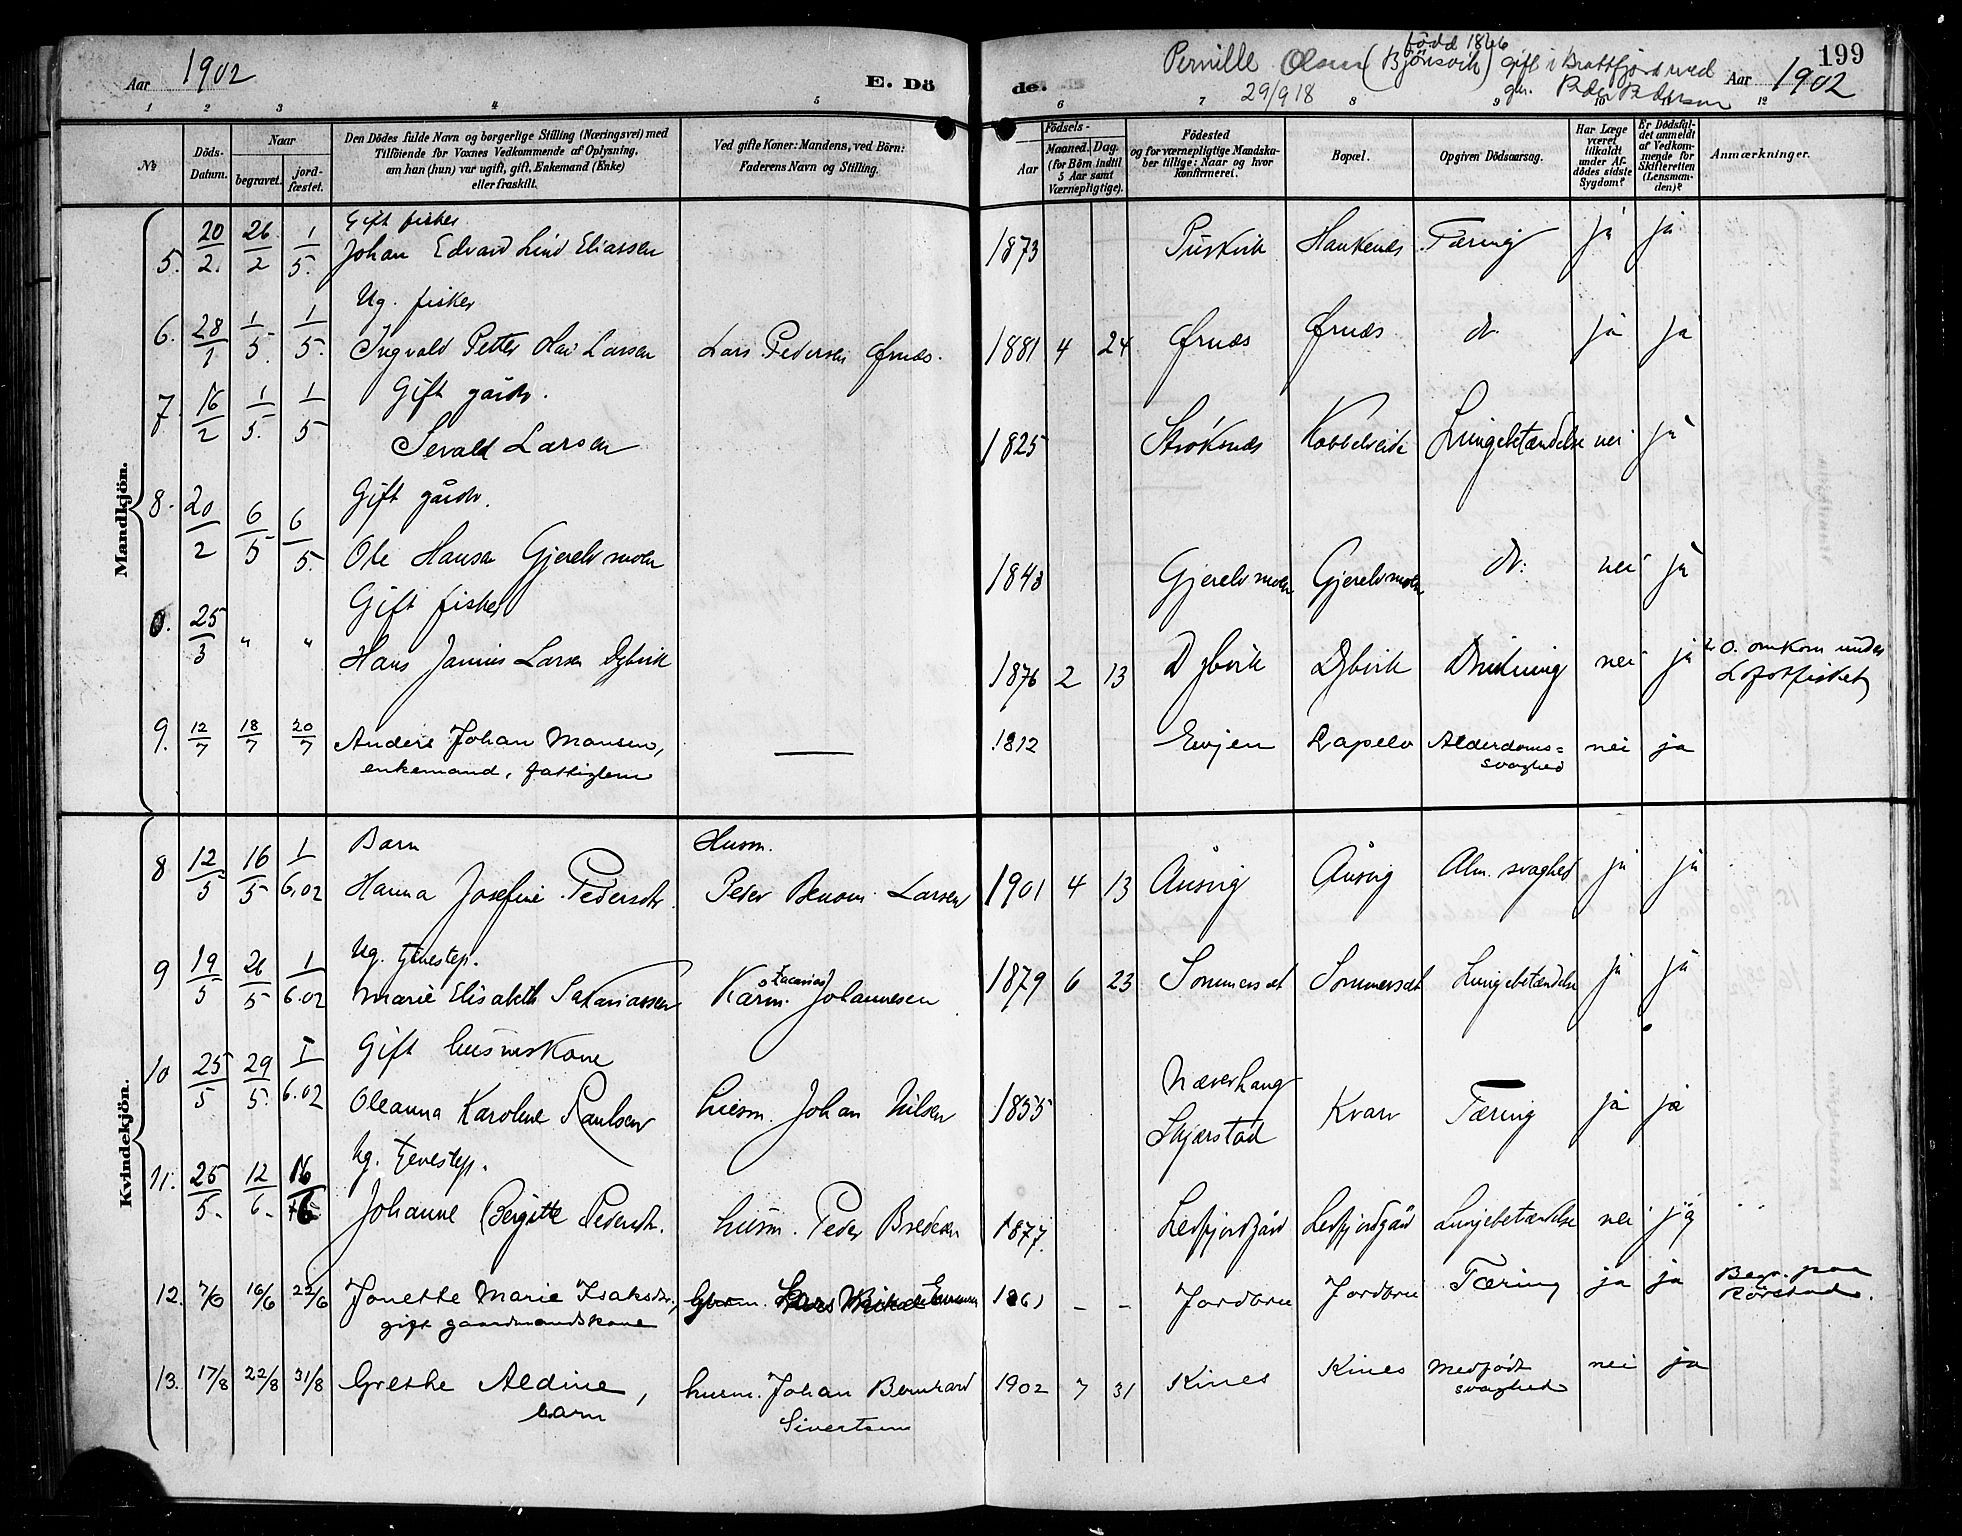 Aar 1902
E. Dö
de.
Pernille Olsen (Bjönsvik) født 1866 gift i Brattfjord med
29/9 18 gm. Peder Pedersen
Aar 1902
199
1 2 3 4 5 6 7 8 9 10 11 12
No
Döds-Datum.
Naar
begravet.
jord-fæstet.
Den Dödes fulde Navn og borgerlige Stilling (Næringsvei) med
Tilföiende for Voxnes Vedkommende af Oplysning,
om han (hun) var ugift, gift, Enkemand (Enke)
eller fraskilt.
Ved gifte Koner: Mandens, ved Börn:
Faderens Navn og Stilling.
Födsels-
Aar
Maaned. Dag.
(for Börn indtil
5 Aar samt
Værnepligtige).
Födested
og for værnepligtige Mandska-
ber tillige: Naar og hvor
konfirmeret.
Bopæl.
Opgiven Dödsaarsag.
Har Læge
været
tilkaldt
under Af-
dödes sidste
Sygdom?
Er Dödsfal-
det anmeldt
af Vedkom-
mende for
Skifteretten
(Lensman-
den)?
Anmærkninger.
Mandkjön.
Gift fisker
5. 20/2. 26/2 1/5. Johan Edvard Lind Eliassen 1873 Haukenes Tæring ja ja
Ug. fisker
6. 28/1 1/5. 1/5. Ingvald Petter Larsen Lars Pedersen Ørnæs. 1881 4 24 Ørnæs Ørnæs do ja ja
Gift gårdbr.
7. 16/2 1/5. 1/5 Sevald Larsen 1825 Strøksnes Kobbelveide Lungebetændelse nei ja
Gift gårdbr.
8. 20/2 6/5 6/5. Ole Hansen Gjerelvmoen 1843 Gjerelvmoen Gjerelvmoen do: nei ja
Gift fisker
0. 25/3 " " Hans Larsen Dybvik 1876 2 13 Dybvik Dybvik Drukning nei ja omkom under
Lofotfisket
9. 12/7 18/7 20/7 Anders Johan Monsen, 1812 Evjen Lapelv Alderdoms= nei ja
enkemand, fattiglem svaghed
Kvindekjön.
Barn Husm.
8 12/5 16/5 1/6.02 Hanna Josefine Pedersdtr. Peder Benoni Larsen 1901 4 13 Ånsvig Ånsvig Alm. svaghed ja ja
Ug. tjenestep.
9 19/5 26/5 1/6.02 Marie Elisabeth Sakariassen Kårm. Zacarias Johannesen 1879 6 23 Sommerset Sommerset Lungebetændelse ja ja
Gift husmskone Næverhaug
10 25/5 29/5. 1/6.02 Oleanna Karoline Paulsen husm. Johan Nilsen 1855 Skjærstad Kvarv Tæring ja ja
Ug. tjenestep.
11. 25/5. 12/6. 16/6 Johanne Bergitte Pedersdtr. husm. Peder Bredesen 1877. Leirfjordgård Leirfjordgård Lungebetændelse nei ja
12. 7/6 16/6 22/6 Jonette Marie Isaksdtr., 1861 - - Jordbru Jordbru Tæring ja ja Begr. paa
gift gaardmandskone Rörstad.
13. 17/8 22/8 31/8 Grethe Aldine, husm. Johan Bernhard 1902 7 31 Kines Kines Medfödt nei ja
barn Sivertsen svaghed